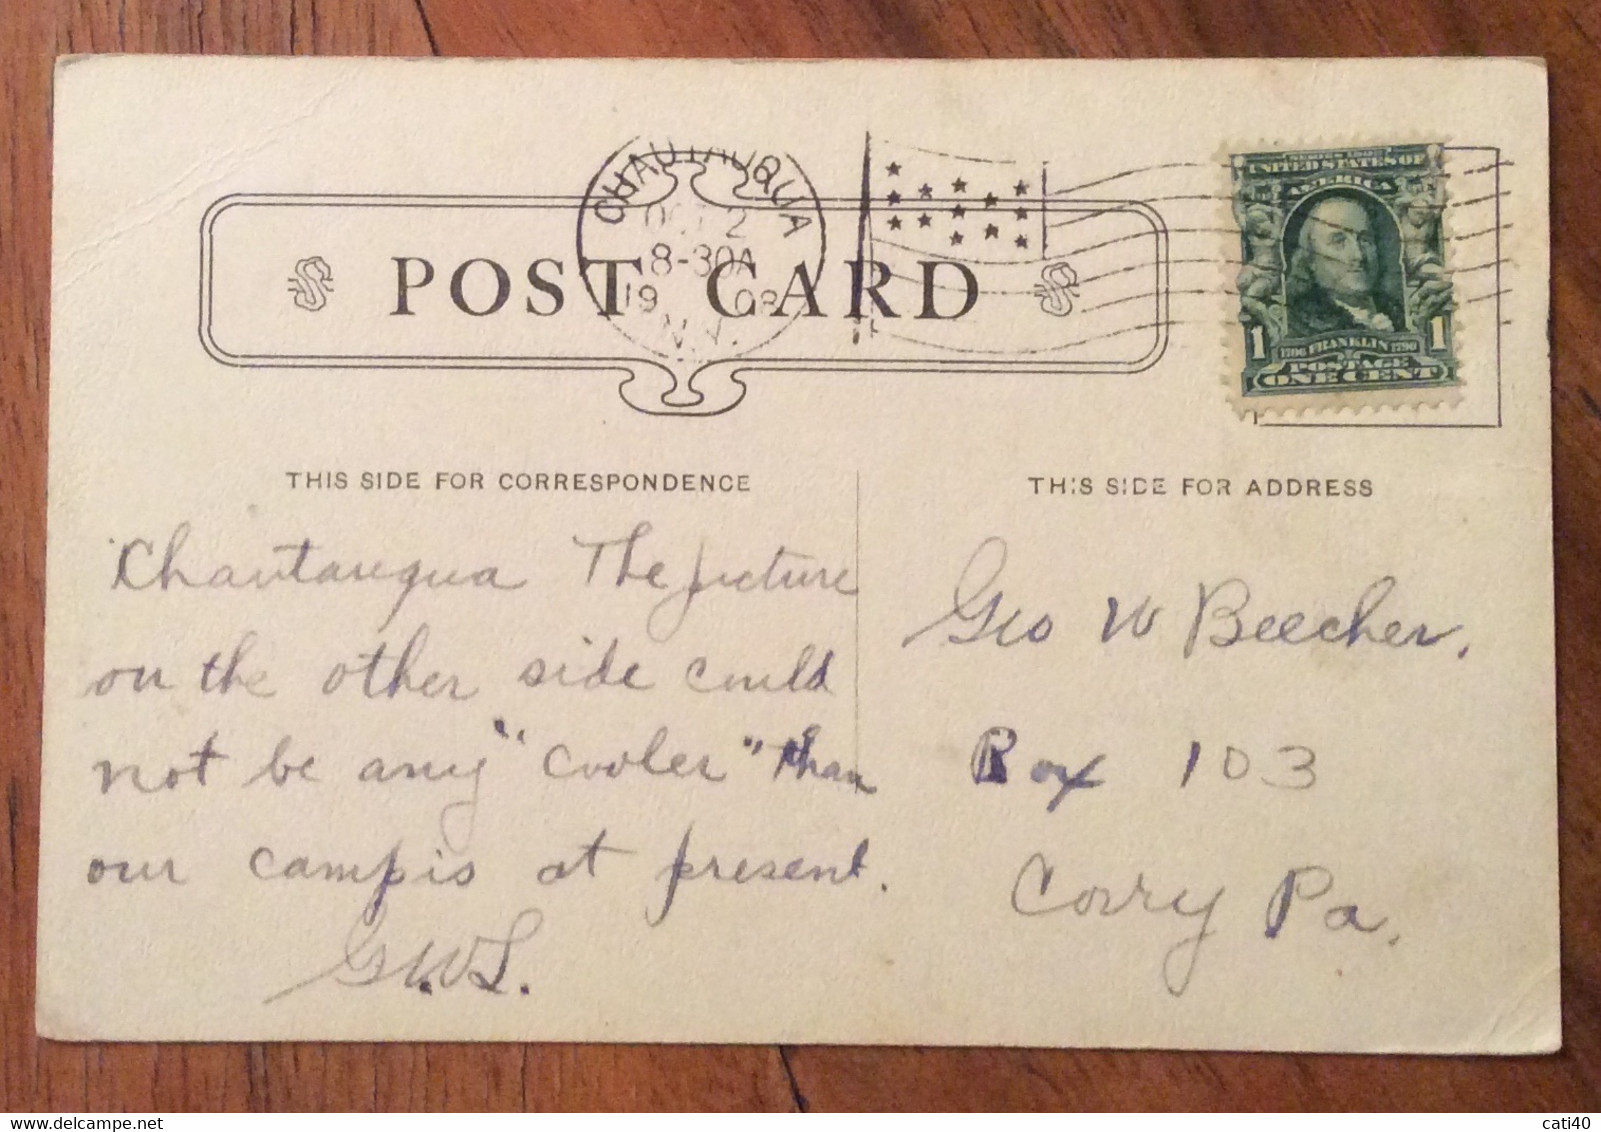 CHAUTAUQUA
OCT 2
8-30A
1908
N.Y.
POST CARD
SERIES 1902
UNITED STATES OF
AMERICA
1 1706 FRANKLIN 1790 1
POSTAGE
ONE CENT
THIS SIDE FOR CORRESPONDENCE
Chautauqua The picture
on the other side could
not be any "cooler" than
our camp is at present.
G.W.L.
THIS SIDE FOR ADDRESS
Geo W Beecher.
Box 103
Corry Pa.
cati40